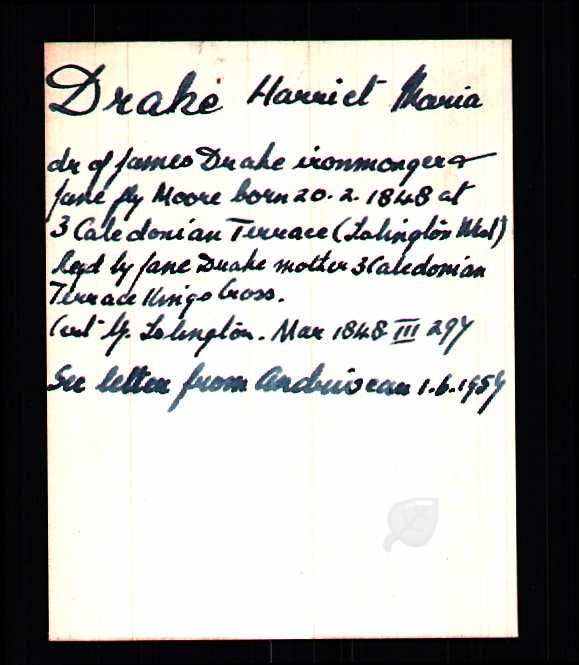 Drake Harriet Maria
dr of James Drake ironmonger &
Jane fly Moore born 20.2.1848 at
3 Caledonian Terrace (Islington West)
Regd by Jane Drake mother 3 Caledonian
Terrace Kings Cross.
Islington. Mar 1848 III 297
See letter from 1.6.1959